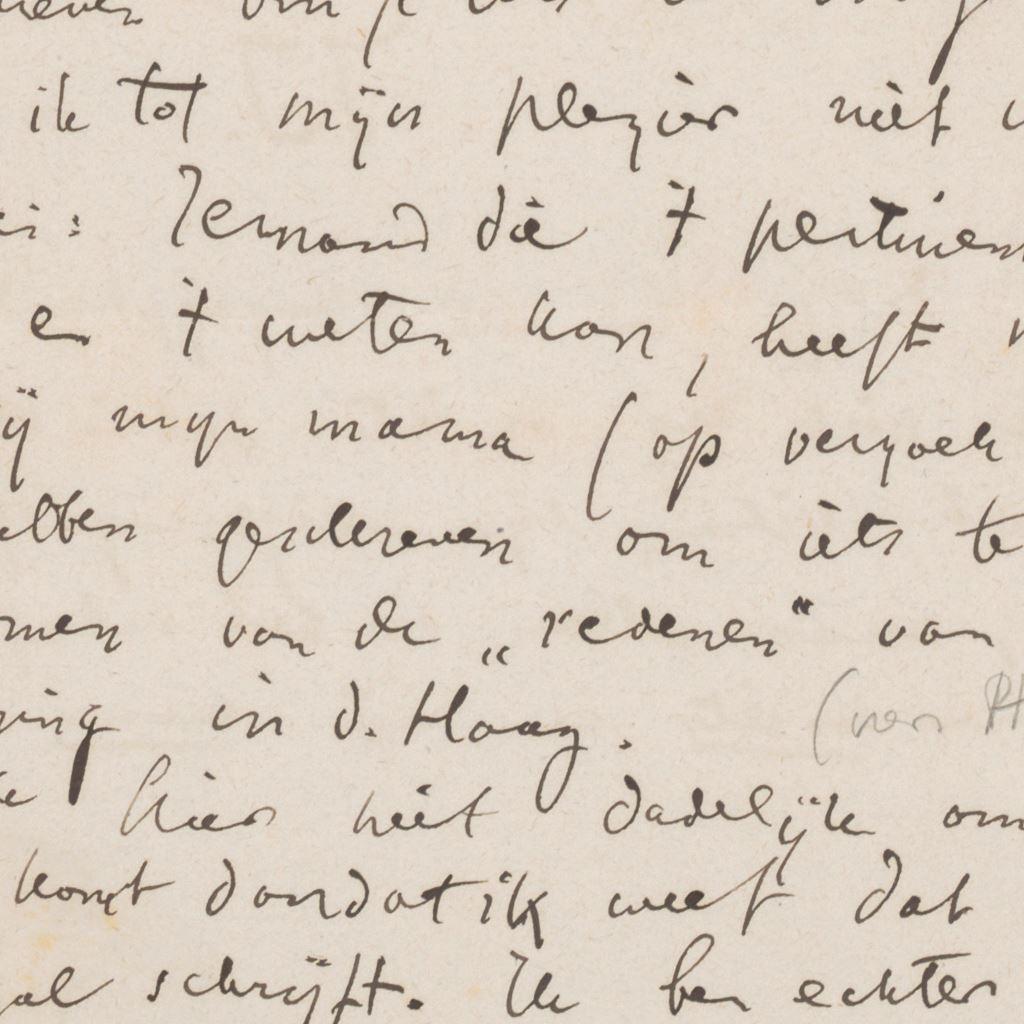 ik tot mijn plezier niet
: Iemand die 't pertinent
en 't weten kan, heeft
ij mijn mama (op verzoek
ebben geschreven om iets te
men van de „redenen" van
ing in d. Haag. (van
hier niet dadelijk om
komt doordat ik weet dat
al schrijft. Ik ben echter